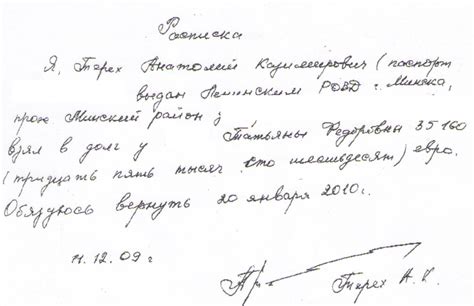 Расписка
Я, Терех Анатолий Казимирович (паспорт
выдан Ленинским РОВД г. Минска,
прож Минский район у
взял в долг у Татьяны Федоровны 35 160
(тридцать пять тысяч сто шестьдесят) евро.
Обязуюсь вернуть 20 января 2010 г.
11.12.09 г
Терех А. К.